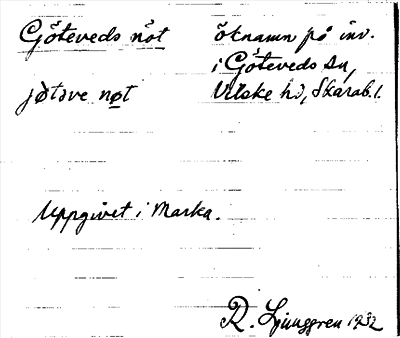 Göteveds nöt öknamn på inv.
i Göteveds sn,
jøtəve nøt Vilske hd, Skarab. l.
Uppgivet i Marka.
R. Ljunggren 1932